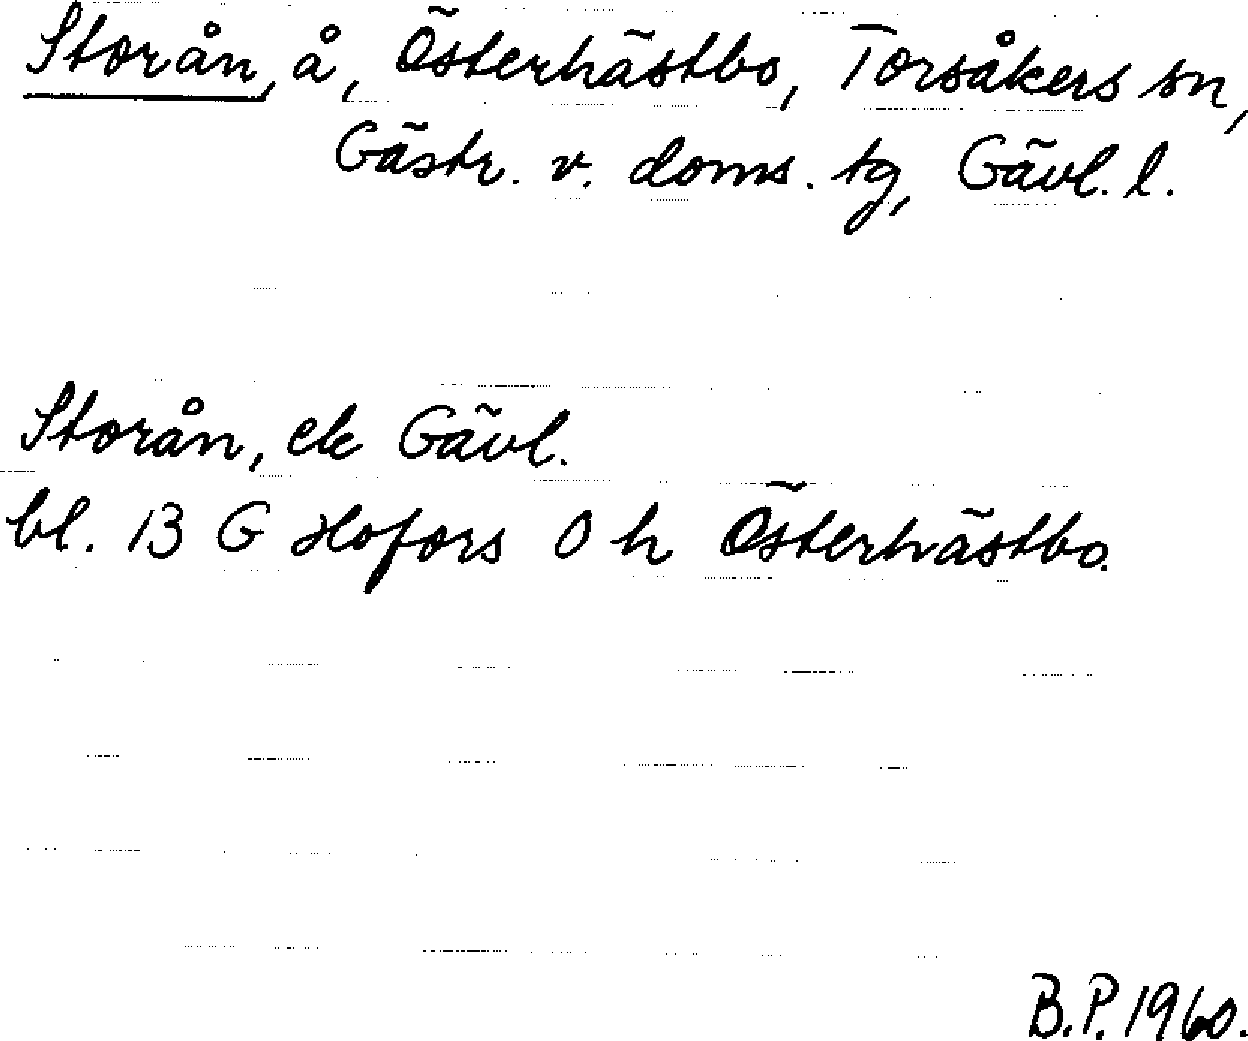 Storån, å, Österhästbo, Torsåkers sn,
Gästr. v. doms. tg, Gävl. l.
Storån, ek Gävl.
bl. 13 G Hofors 0 h Österhästbo.
B.P. 1960.